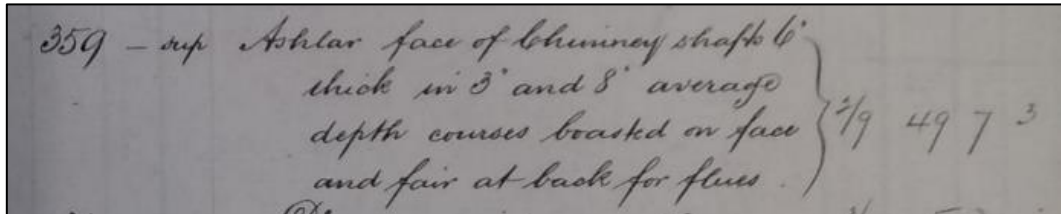 359 - sup Ashlar face of Chimney shafts 6"
thick in 3" and 8" average
depth courses boasted on face 2/9 49 7 3
and fair at back for flues.